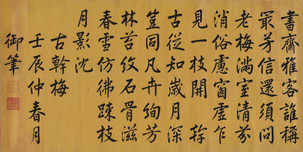 書齋雅客誰稱
最芳信還須問
老梅滿室清芬
消俗慮
見一枝開 幹
古從知歲月深
豈同凡卉絢芳
林苔紋石骨滋
春雪仿彿疎枝
月影沈
古幹梅
壬辰仲春月
御筆